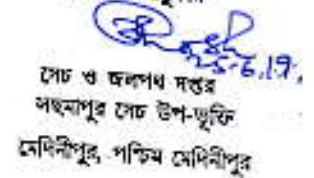 সেচ ও জলপথ দপ্তর
সছমাপুর সেচ উপ-ভূক্তি
মেদিনীপুর, পশ্চিম মেদিনীপুর